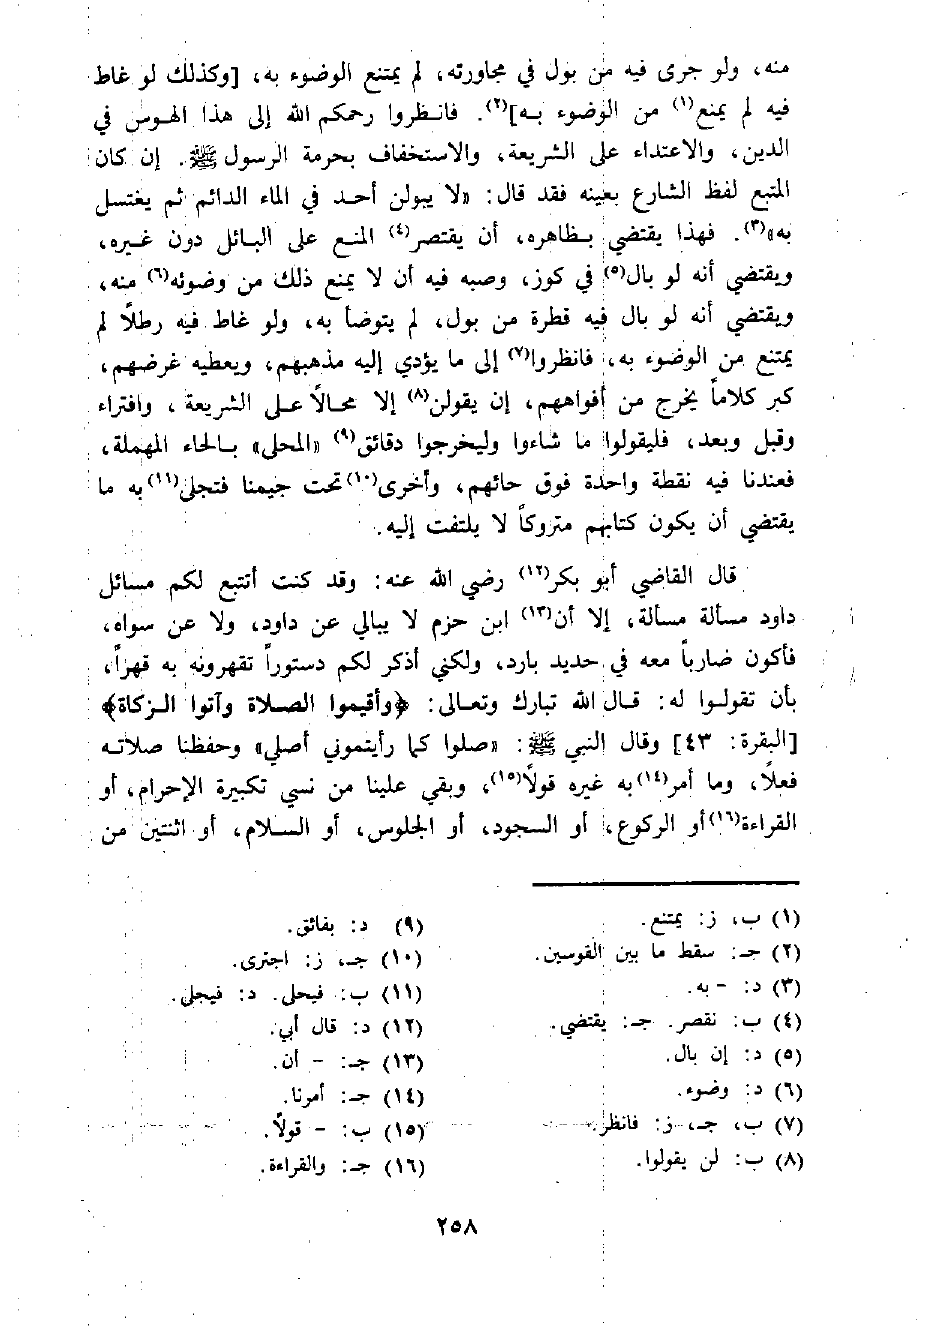 منه، ولو جرى فيه من بول في مجاورته، لم يمتنع الوضوء به، [وكذلك لو غاط
فيه لم يمنع(١) من الوضوء به](٢). فانظروا رحمكم الله إلى هذا الهوس في
الدين، والاعتداء على الشريعة، والاستخفاف بحرمة الرسول ﷺ. إن كان
المتبع لفظ الشارع بعينه فقد قال: «لا يبولن أحد في الماء الدائم ثم يغتسل
به»(٣). فهذا يقتضي بظاهره، أن يقتصر(٤) المنع على البائل دون غيره،
ويقتضي أنه لو بال(٥) في كوز، وصبه فيه أن لا يمنع ذلك من وضوئه(٦) منه،
ويقتضي أنه لو بال فيه قطرة من بول، لم يتوضأ به، ولو غاط فيه رطلاً لم
يمتنع من الوضوء به، فانظروا(٧) إلى ما يؤدي إليه مذهبهم، ويعطيه غرضهم،
كبر كلاماً يخرج من أفواههم، إن يقولن(٨) إلا محالاً على الشريعة، وافتراء
وقبل وبعد، فليقولوا ما شاءوا وليخرجوا دقائق(٩) «المحلى» بالحاء المهملة،
فعندنا فيه نقطة واحدة فوق حائهم، وأخرى(١٠) تحت جيمنا فتجلى(١١) به ما
يقتضي أن يكون كتابهم متروكاً لا يلتفت إليه.
قال القاضي أبو بكر(١٢) رضي الله عنه: وقد كنت أتتبع لكم مسائل
داود مسألة مسألة، إلا أن(١٣) ابن حزم لا يبالي عن داود، ولا عن سواه،
فأكون ضارباً معه في حديد بارد، ولكني أذكر لكم دستوراً تقهرونه به قهراً،
بأن تقولوا له: قال الله تبارك وتعالى: ﴿وأقيموا الصلاة وآتوا الزكاة﴾
[البقرة: ٤٣] وقال النبي ﷺ: «صلوا كما رأيتموني أصلي» وحفظنا صلاته
فعلاً، وما أمر(١٤) به غيره قولاً(١٥)، وبقي علينا من نسي تكبيرة الإحرام، أو
القراءة(١٦) أو الركوع، أو السجود، أو الجلوس، أو السلام، أو اثنتين من
(١) ب، ز: يمتنع.
(٢) جـ: سقط ما بين القوسين.
(٣) د: - به.
(٤) ب: نقصر. جـ: يقتضي.
(٥) د: إن بال.
(٦) د: وضوء.
(٧) ب، جـ، ز: فانظر.
(٨) ب: لن يقولوا.
(٩) د: بفائق.
(١٠) جـ، ز: اجترى.
(١١) ب: فيحلى. د: فيجلى.
(١٢) د: قال أبي.
(١٣) جـ: - أن.
(١٤) جـ: أمرنا.
(١٥) ب: - قولاً.
(١٦) جـ: والقراءة.
٢٥٨